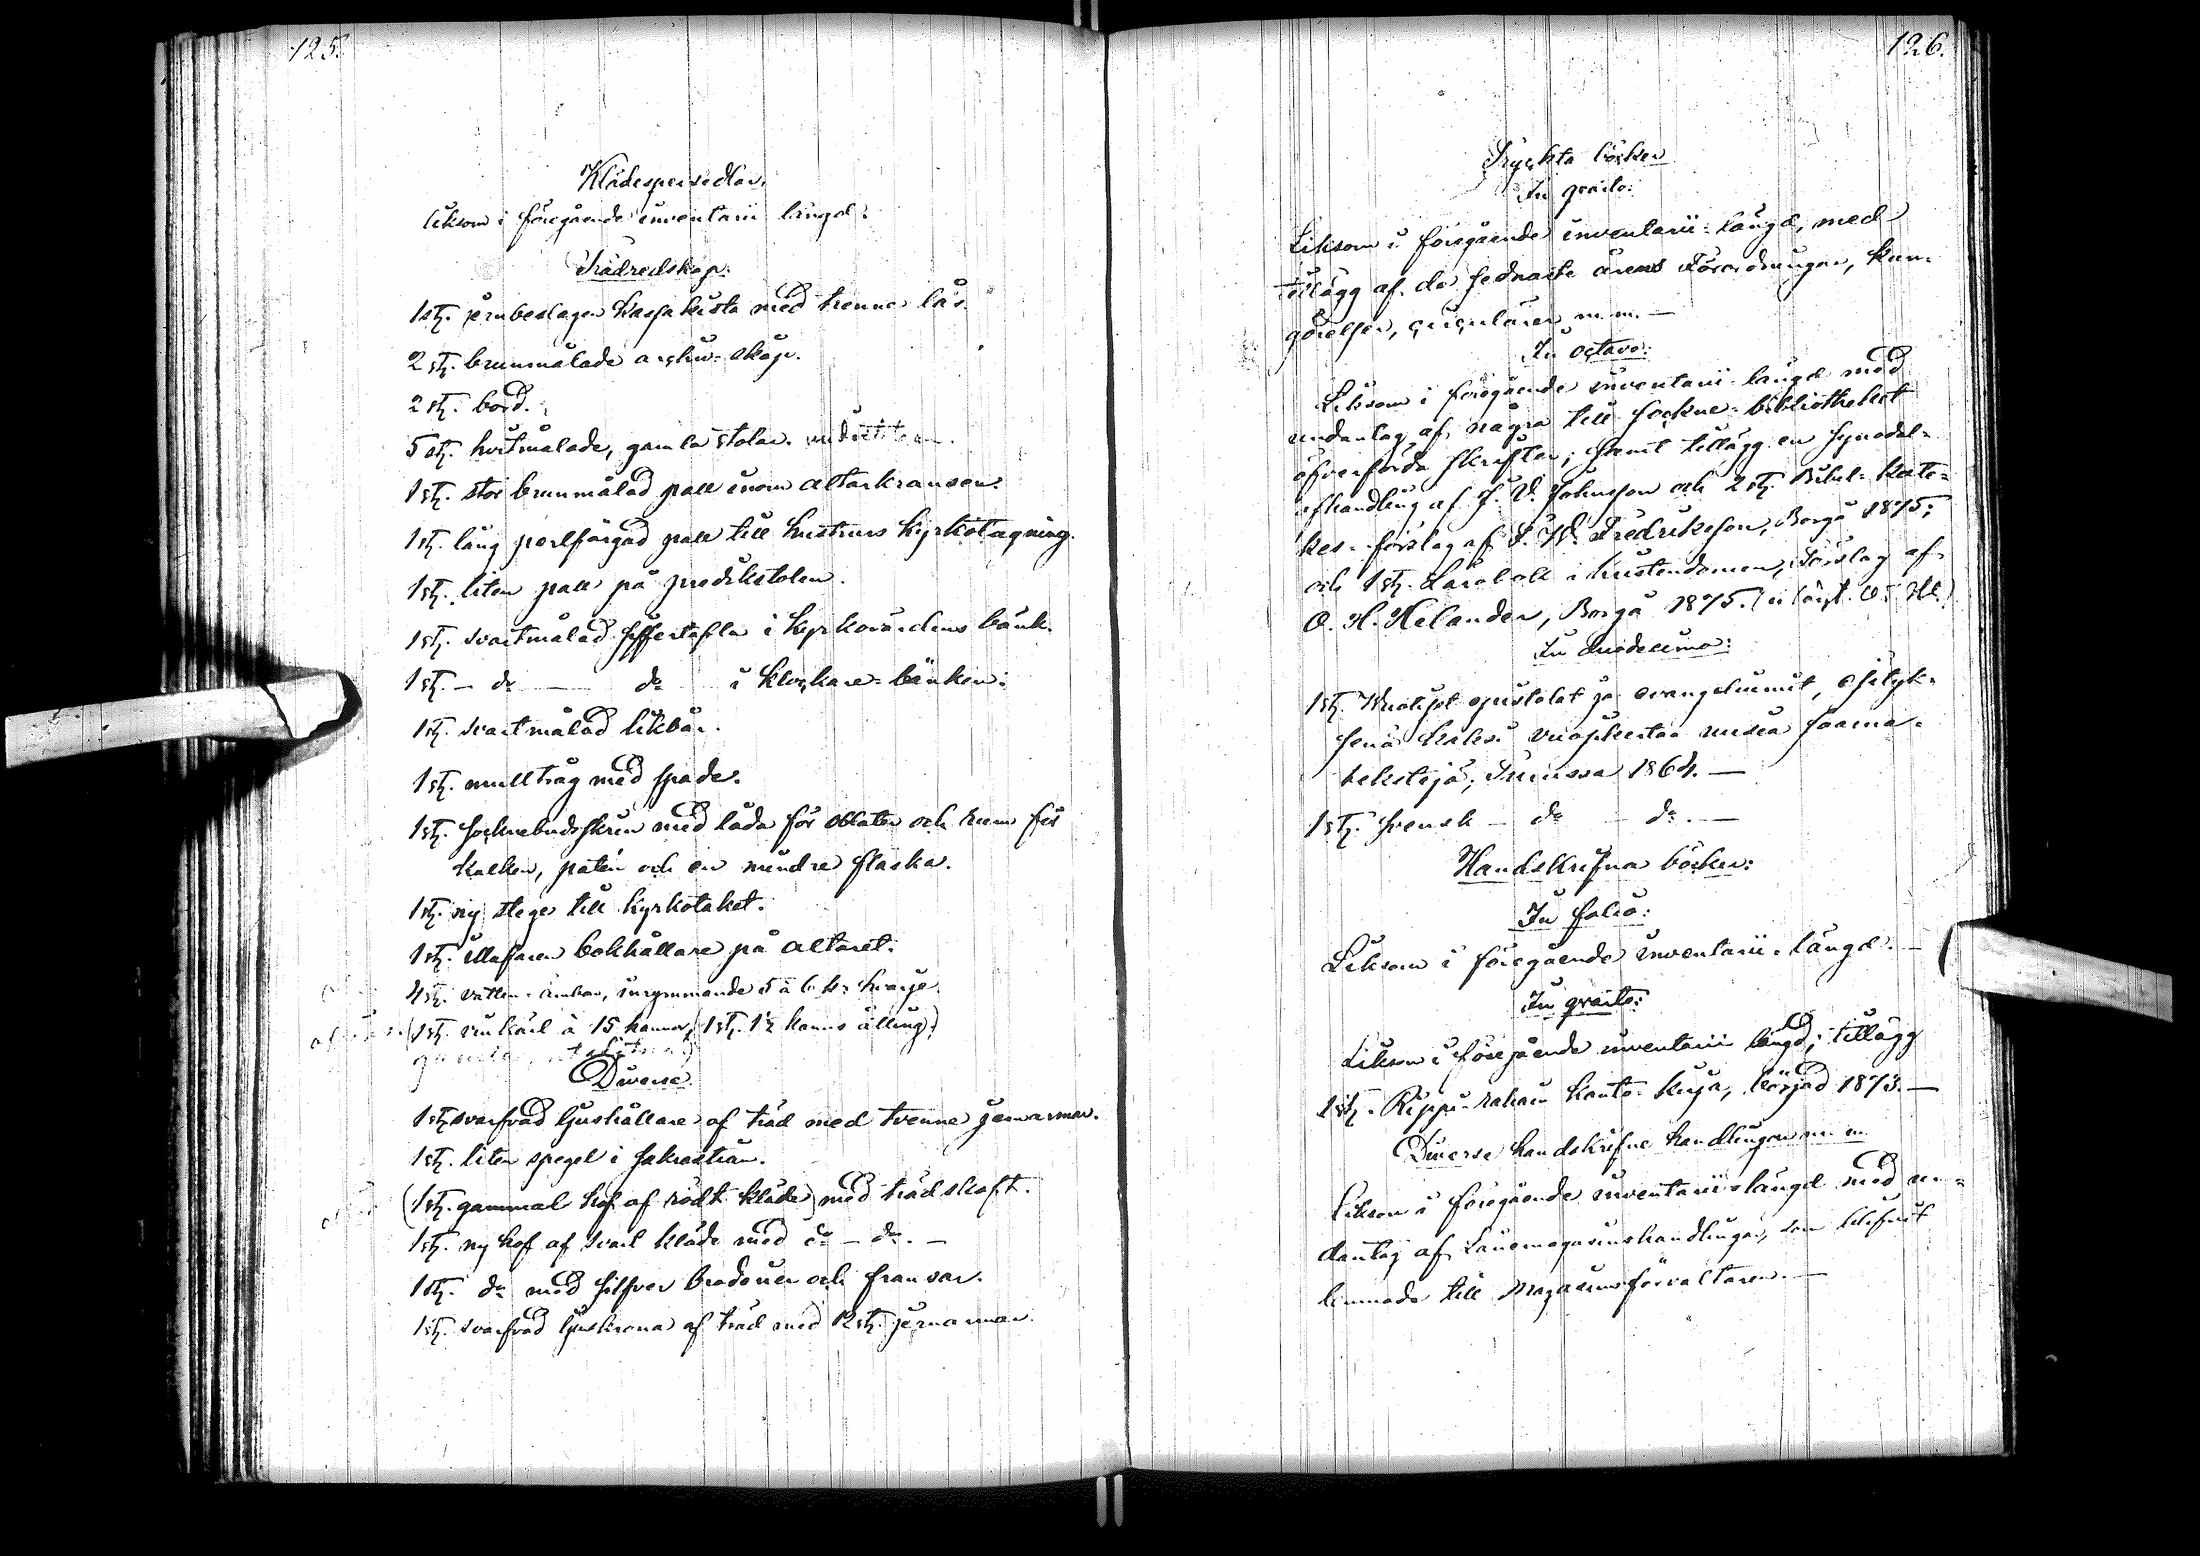 125.
Klädespersedlar.
liksom i föregående inventarii längd.
Trädredskap.
1 st. jernbeslagen kassakista med trenne lås.
2 st. brunmålade arkiv-skåp.
2 st. bord.
5 st. hvitmålade, gamla stolar.
1 st. stor brunmålad pall inom altarkransen.
1 st. lång perlfärgad pall till hustrurs kyrkotagning.
1 st. liten pall på predikstolen.
1 st. svartmålad siffertafla i kyrkovärdens bänk.
1 st. – do — do i klockare-bänken.
1 st. svartmålad likbår.
1 st. mulltråg med spade.
1 st. socknebudsskrin med låda för oblater och rum för
kalken, patén och en mindre flaska.
1 st. ny stege till kyrkotaket.
1 st. bokhållare på altaret.
4 st. vatten-ämbar, inrymmande 5 à 6 kr hvarje.
(1 st. vinkäril à 15 kannor, (1 st. 1½ kanns ålling)
Diverse.
1 st. svarfvad ljushållare af träd med tvenne jernarmar.
1 st. liten spegel i sakrastian.
(1 st. gammal håf af rödt kläde) med trädskaft.
1 st. ny håf af svart kläde med do – do. –
1 st. do med silfver broderier och fransar.
1 st. svarfvad ljuskrona af träd med 12 st. jernarmar.
126.
Tryckta böcker
In qvarto:
Liksom i föregående inventarii-längd, med
tillägg af de sednaste årens Förordningar, kun-
görelser, circulärer m.m. —
In octavo:
Liksom i föregående inventarii längd med
undantag af några till sockne-bibliotheket
öfverförda skrifter; samt tillägg en synodal-
afhandling af J. V. Johnsson och 2 st. Bibel-kate-
kes-förslag af Fredriksson, Borgå 1875;
och 1 st. Lärobok i kristendomen, Förslag af
O. H. Helander, Borgå 1875.
In duodecimo:
1 st. epistolat ja evangeliumit,
senä kaksi vuosikertaa uusia saarna-
tekstejä, Turussa 1864. —
1 st. svensk – do – do. —
Handskrifna böcker:
In folio:
Liksom i föregående inventarii-längd. —
In qvarto:
Liksom i föregående inventarii längd; tillägg
1 st. Rippi-rahain kanto-kirja, börjad 1873. —
Diverse handskrifne handlingar m.m.
Liksom i föregående inventarii-längd med un-
dantag af Lånemagasinshandlingar, som blifvit
lemnade till Magasinsförvaltaren. —